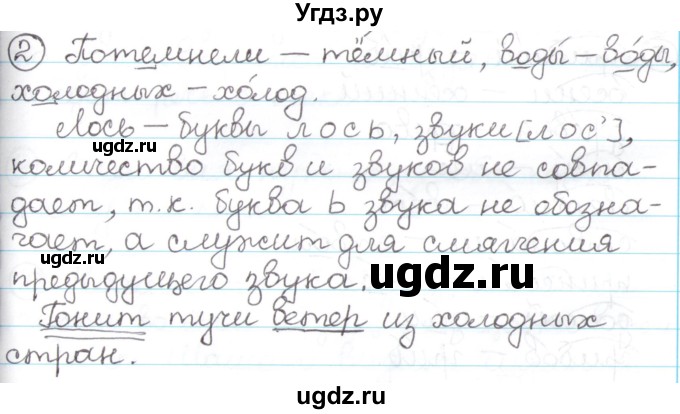 Угдз.ру
② Потемнели – тёмный, воды́ – во́ды,
холодных – хо́лод.
Лось – буквы л о с ь, звуки [лос'],
количество букв и звуков не совпа-
дает, т.к. буква ь звука не обозна-
чает, а служит для смягчения
ugdz.ru
предыдущего звука.
ugdz.ru
Гонит тучи ветер из холодных
стран.
ugdz.ru